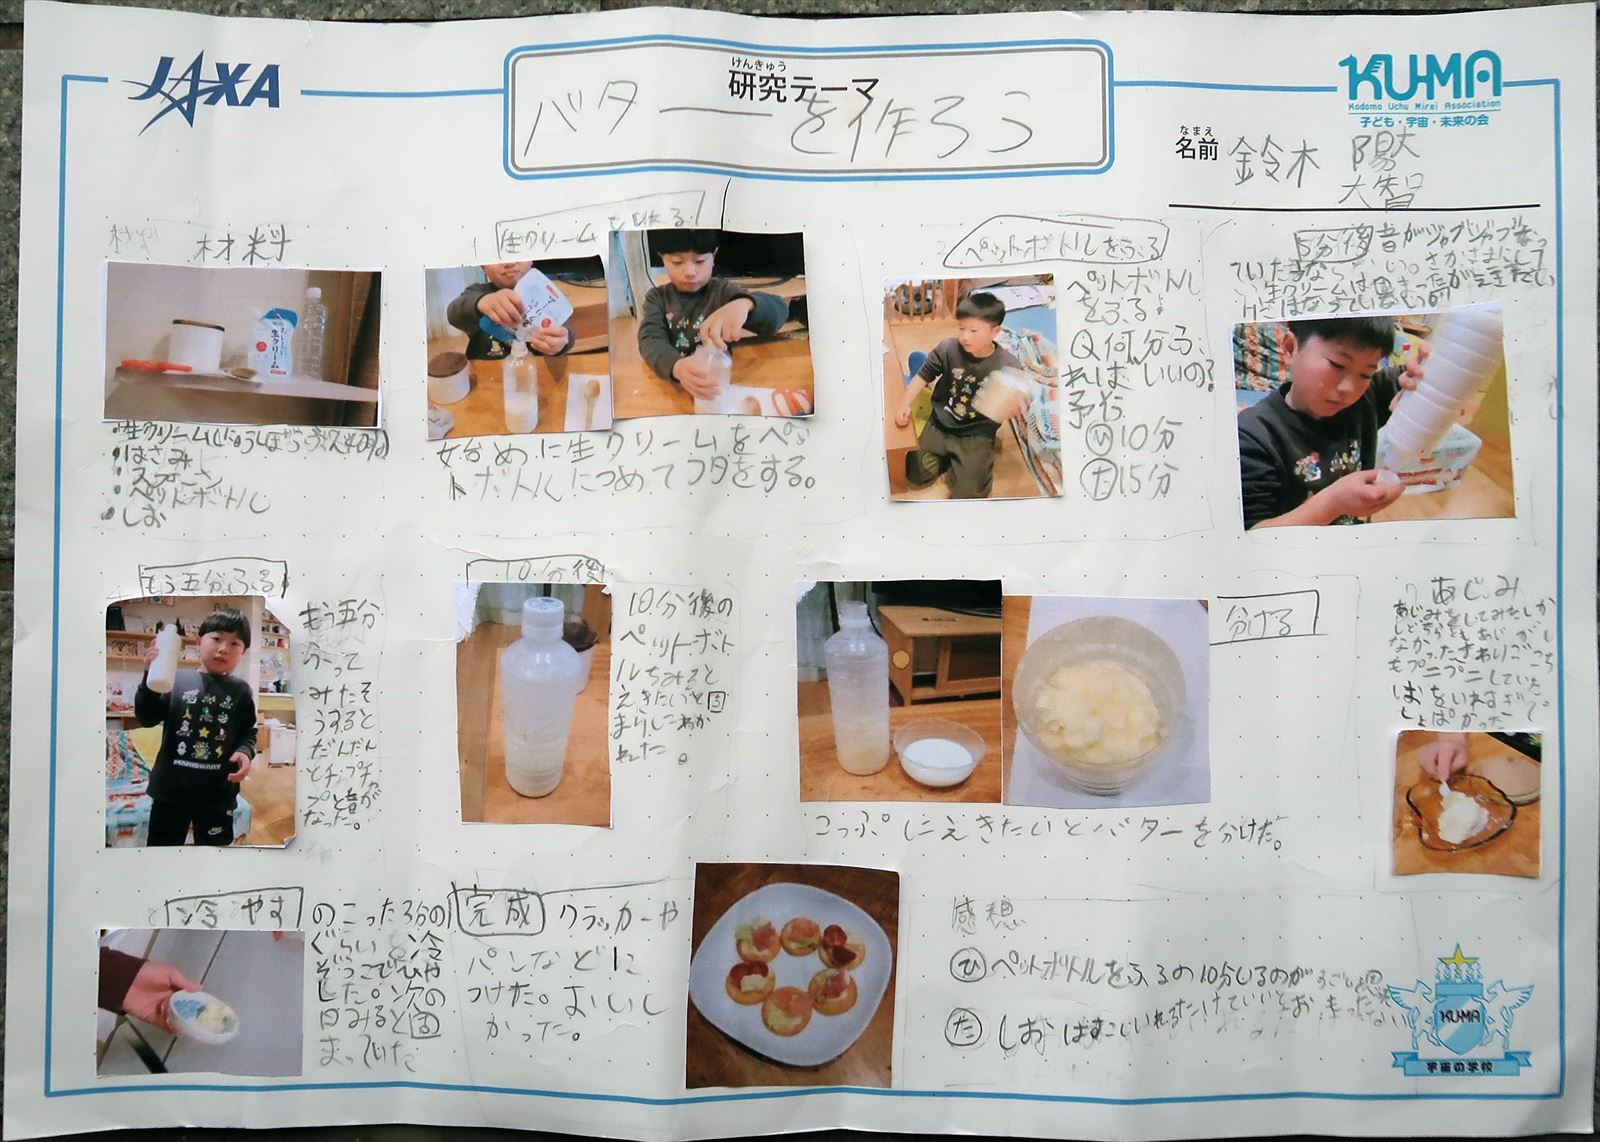 JAXA
けんきゅう
研究テーマ
バターを作ろう
KU-MA
Kodomo Uchu Mirai Association
子ども・宇宙・未来の会
なまえ
名前
鈴木 陽大
大智
材料
・はさみ
・スプーン
・ペットボトル
・しお
生クリームを
始めに生クリームをペッ
トボトルにつめてフタをする。
ペットボトルをふる
ペットボトル
をふる。
Q何分ふ
ればいいの?
予そう
ひ10分
た15分
5分後
音がジャブジャブなっ
もう五分ふる
もう五分
ふって
みたそ
うすると
だんだん
とチャプチャ
プと音が
なった。
10分後
10分後の
ペットボト
ルをみると
えきたいと固
まりにわか
れた。
分ける
こっぷにえきたいとバターを分けた。
あじみ
あじみをしてみたしか
しどちらともあじがし
なかったさわりごこち
もプニプニしていた
しおをいれすぎて
しょっぱかった
冷やす
のこった3分の1
ぐらいを冷
ぞうこでひや
した。次の
日みると固
まっていた
完成
クラッカーや
パンなどに
つけた。おいし
かった。
感想
ひ ペットボトルをふるの10分しるのが
た しおはすこしいれるだけでいいとおもった
KU-MA
宇宙の学校